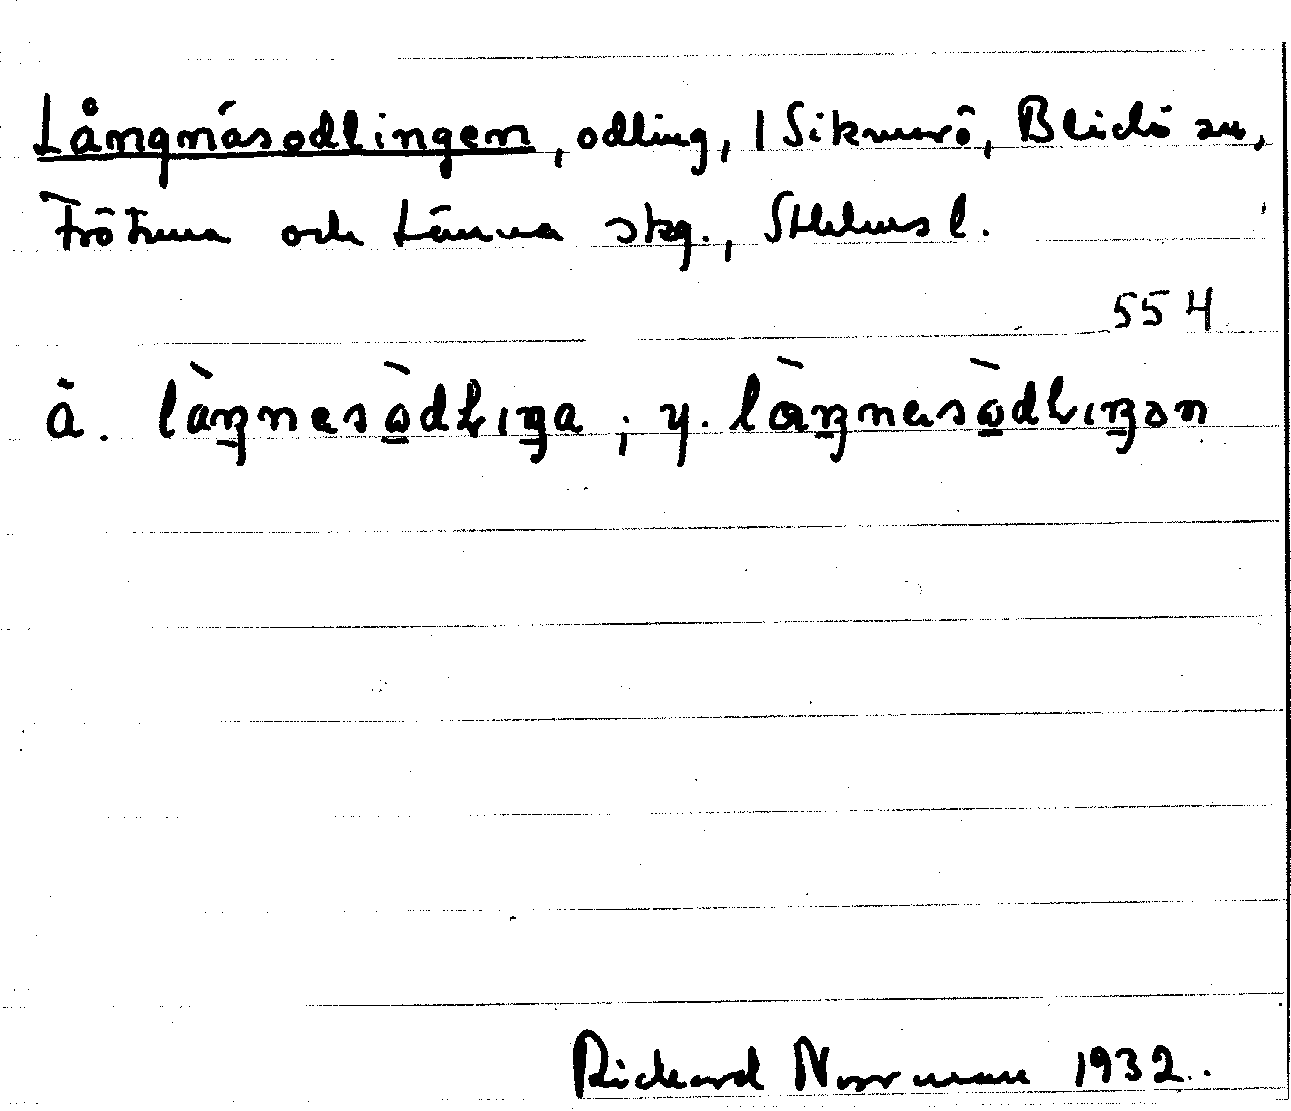 Långnäsodlingen, odling, 1 Sikmarö, Blidö sn,
Frötuna och Länna skg., Sthlms l.
554
ä. làŋnesòdLiŋa; y. làŋnesòdLiŋən
Rickard Norrman 1932.